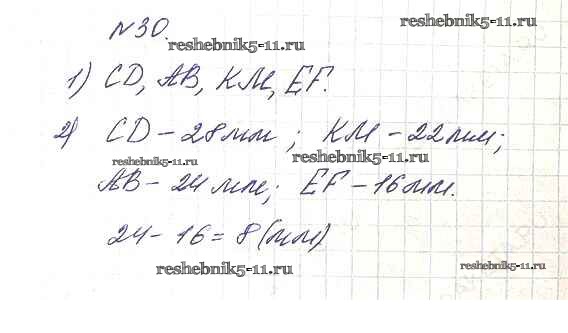 №30.
reshebnik5-11.ru
reshebnik5-11.ru
1) CD, AB, KM, EF.
2) CD - 28мм; KM - 22мм;
reshebnik5-11.ru
reshebnik5-11.ru
AB - 24мм; EF - 16мм.
24 - 16 = 8 (мм)
reshebnik5-11.ru
reshebnik5-11.ru